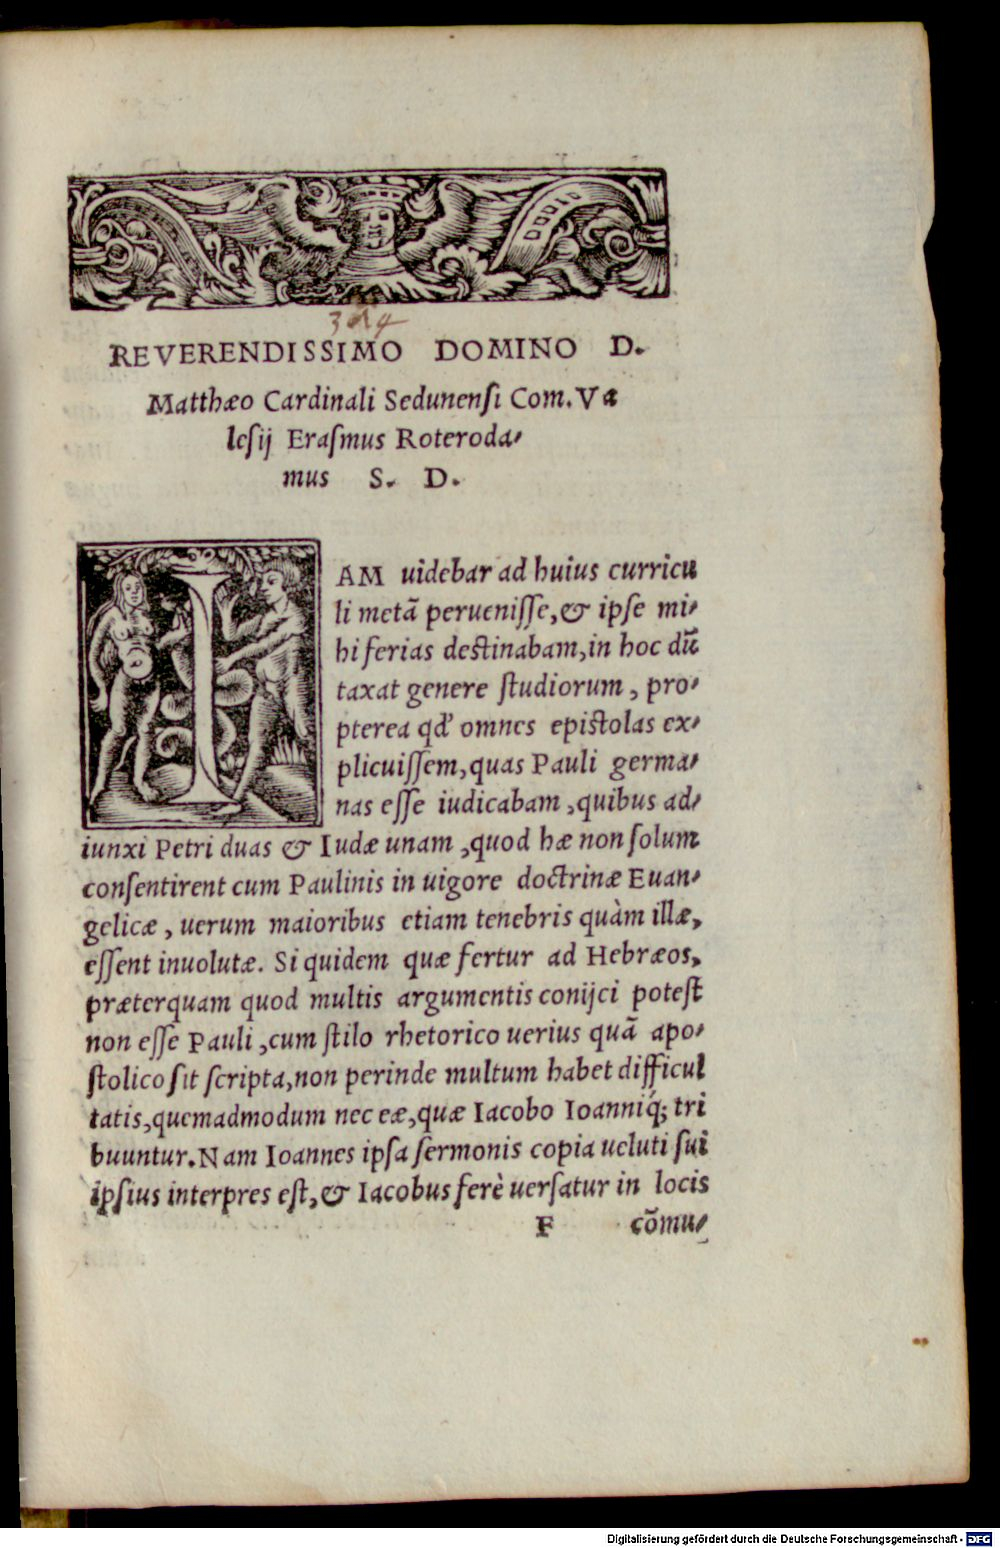 324
REVERENDISSIMO DOMINO D.
Matthæo Cardinali Sedunensi Com. Va
lesij Erasmus Roteroda-
mus S. D.
IAM uidebar ad huius curricu
li metã peruenisse, & ipse mi-
hi ferias destinabam, in hoc dũ
taxat genere studiorum, pro-
pterea qd' omnes epistolas ex-
plicuissem, quas Pauli germa-
nas esse iudicabam, quibus ad-
iunxi Petri duas & Iudæ unam, quod hæ non solum
consentirent cum Paulinis in uigore doctrinæ Euan-
gelicæ, uerum maioribus etiam tenebris quàm illæ,
essent inuolutæ. Si quidem quæ fertur ad Hebræos,
præterquam quod multis argumentis conijci potest
non esse Pauli, cum stilo rhetorico uerius quã apo-
stolico sit scripta, non perinde multum habet difficul
tatis, quemadmodum nec eæ, quæ Iacobo Ioanniq́; tri
buuntur. Nam Ioannes ipsa sermonis copia ueluti sui
ipsius interpres est, & Iacobus ferè uersatur in locis
F cõmu-
Digitalisierung gefördert durch die Deutsche Forschungsgemeinschaft - DFG